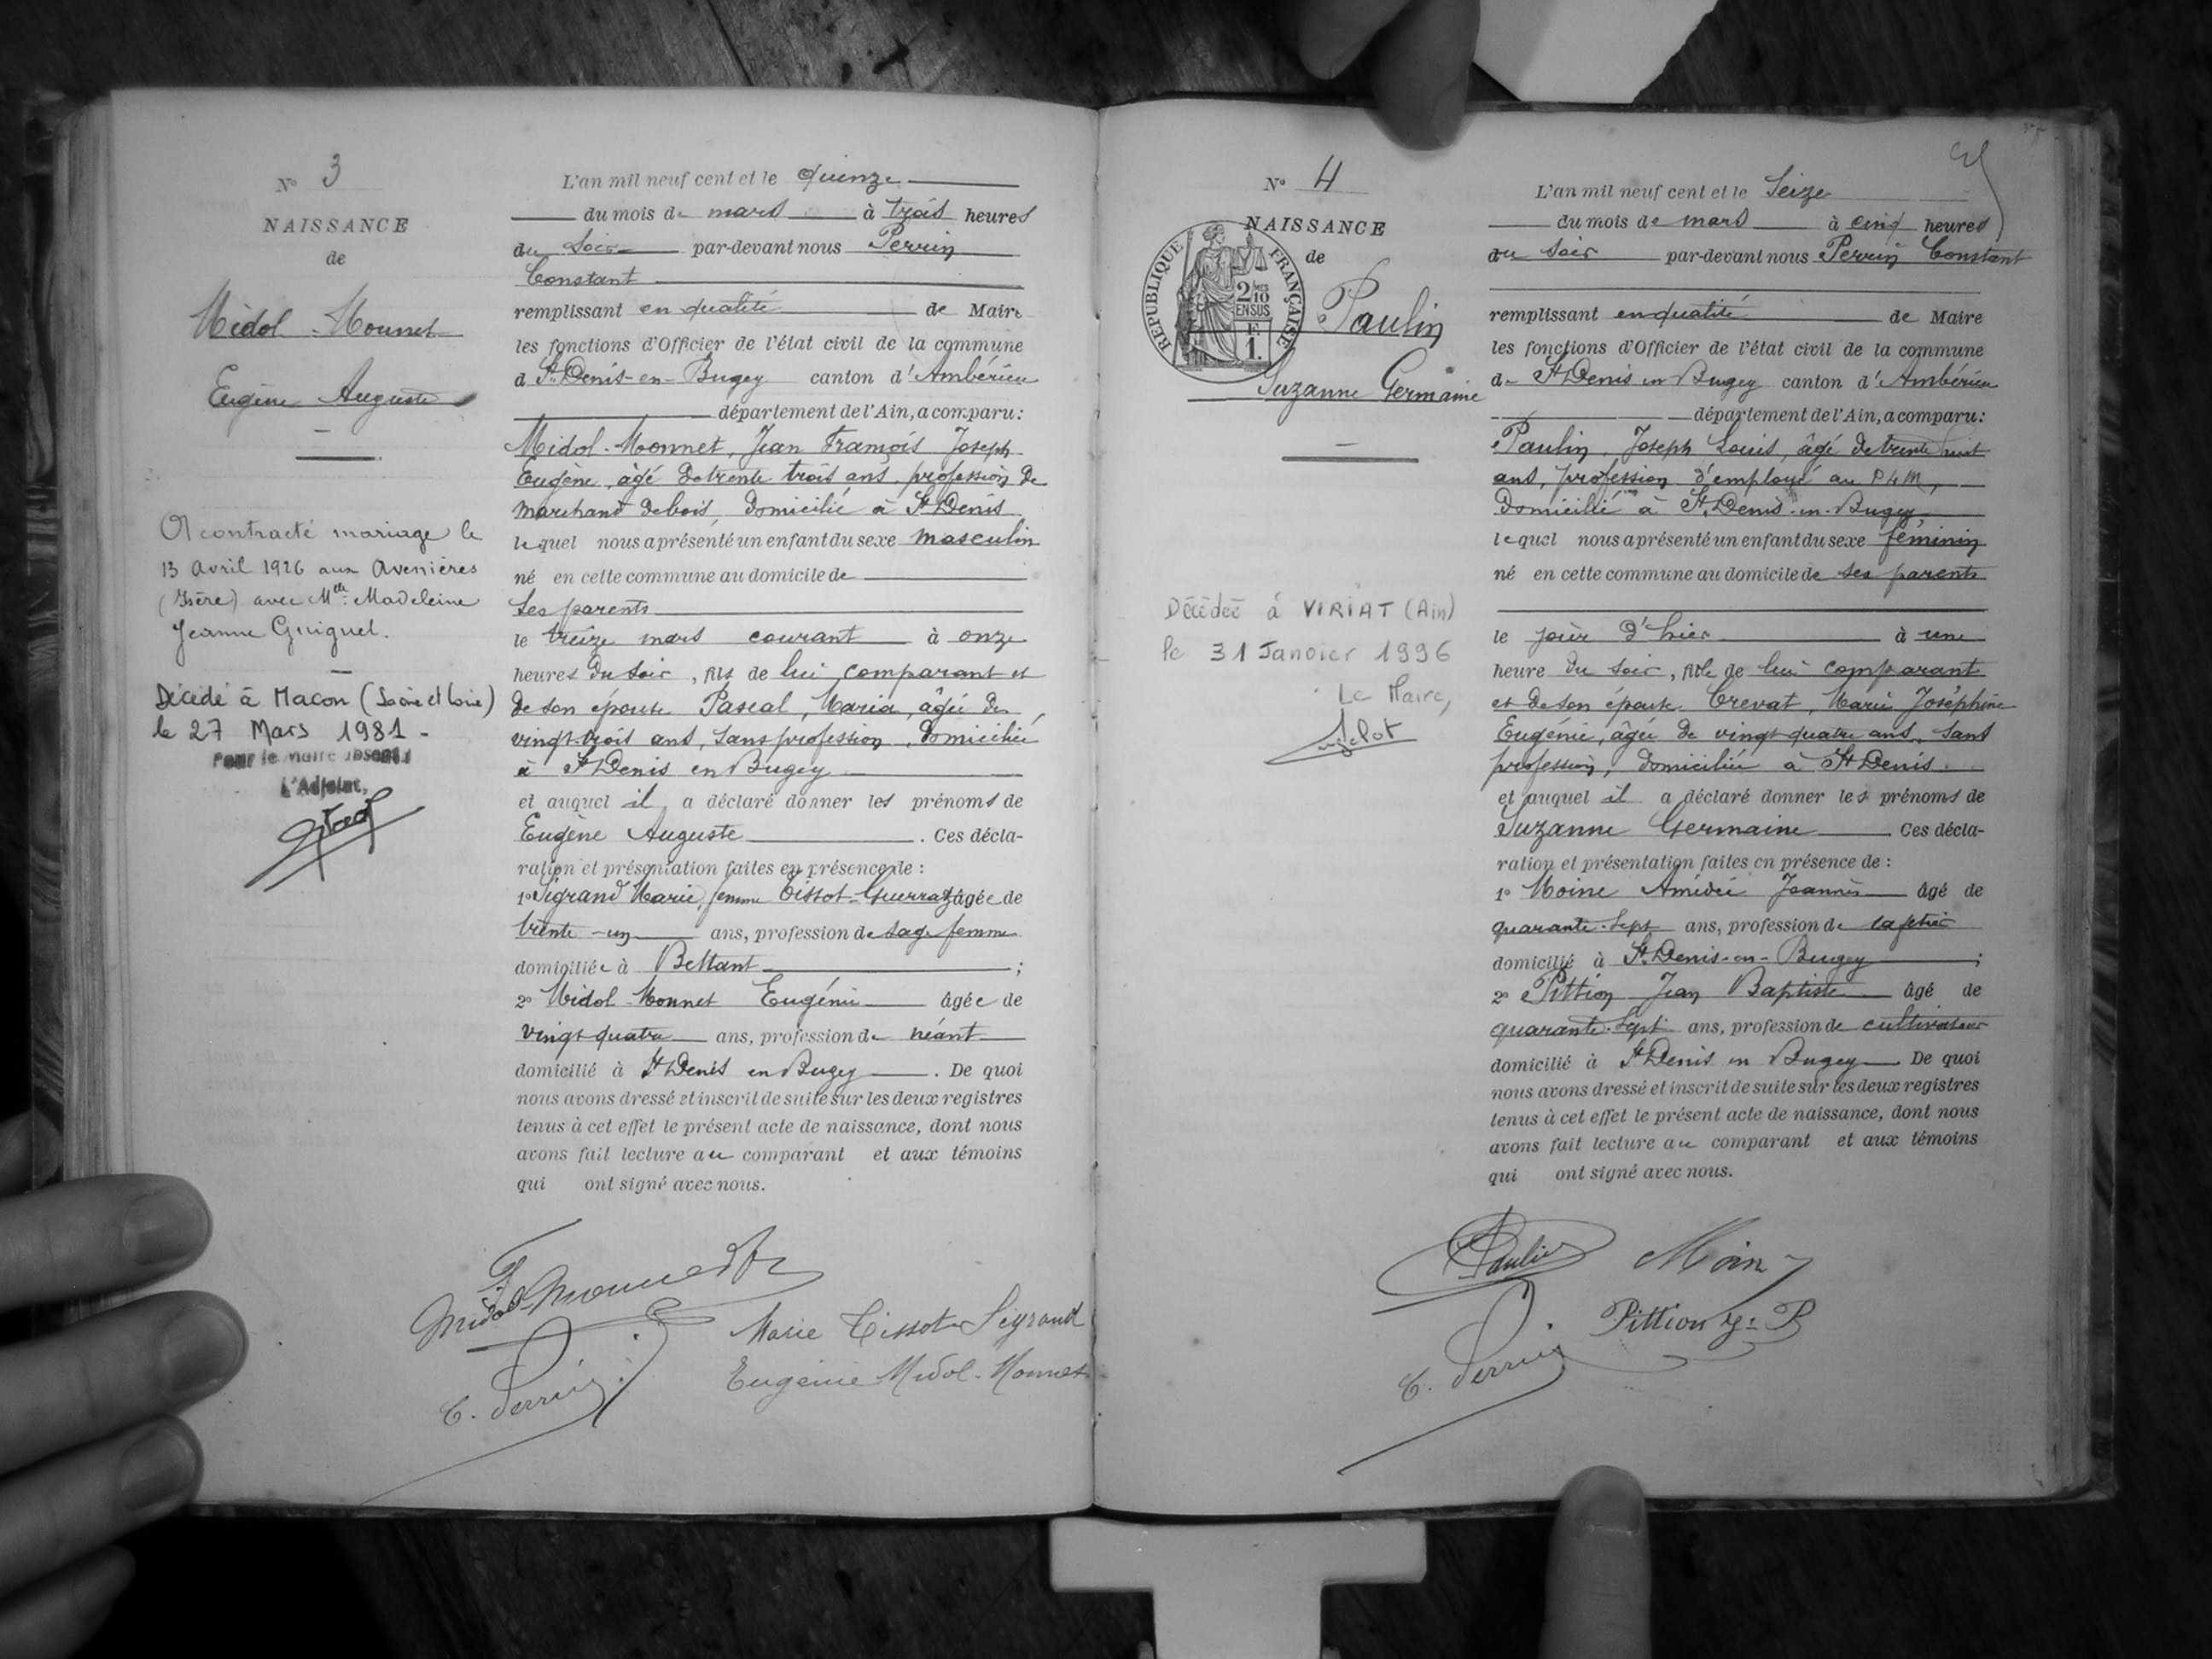 N° 3
NAISSANCE
de
Midol-Monnet
Eugène Auguste
A contracté mariage le
13 Avril 1926 aux Avenières
(Isère) avec Mlle Madeleine
Jeanne Guiguet.
Décédé à Macon (Saône et Loire)
le 27 Mars 1981 -
Pour le Maire
L'Adjoint,
L'an mil neuf cent et le quinze
du mois de mars à trois heures
du soir par-devant nous Perrin
Constant
remplissant en qualité de Maire
les fonctions d'Officier de l'état civil de la commune
d St Denis-en-Bugey canton d'Ambérieu
département de l'Ain, a comparu:
Midol-Monnet, Jean François Joseph
Eugène, âgé de trente trois ans, profession de
marchand de bois, domicilié à St Denis
lequel nous a présenté un enfant du sexe masculin
né en cette commune au domicile de
ses parents
le treize mars courant à onze
heures du soir, fils de lui comparant et
de son épouse Pascal, Maria, âgée de
vingt-trois ans, sans profession, domiciliée
à St Denis en Bugey
et auquel il a déclaré donner les prénoms de
Eugène Auguste. Ces décla-
ration et présentation faites en présence de:
1° Sigrand Marie, femme Tissot-Guerraz âgée de
trente-un ans, profession de sage femme
domiciliée à Bettant;
2° Midol-Monnet Eugénie âgée de
vingt quatre ans, profession de néant
domicilié à St Denis en Bugey. De quoi
nous avons dressé et inscrit de suite sur les deux registres
tenus à cet effet le présent acte de naissance, dont nous
avons fait lecture au comparant et aux témoins
qui ont signé avec nous.
Midol-Monnet
Marie Tissot Sigrand
C. Perrin
Eugénie Midol-Monnet
N° 4
NAISSANCE
de
RÉPUBLIQUE FRANÇAISE
2/10
EN SUS
F
1.
Paulin
Suzanne Germaine
Décédée à VIRIAT (Ain)
le 31 Janvier 1996
Le Maire,
L'an mil neuf cent et le Seize
du mois de mars à cinq heures
du soir par-devant nous Perrin Constant
remplissant en qualité de Maire
les fonctions d'Officier de l'état civil de la commune
de St Denis en Bugey canton d'Ambérieu
département de l'Ain, a comparu:
Paulin, Joseph Louis, âgé de trente huit
ans, profession d'employé au PLM,
domicilié à St Denis-en-Bugey,
lequel nous a présenté un enfant du sexe féminin
né en cette commune au domicile de ses parents
le jour d'hier à une
heure du soir, fille de lui comparant
et de son épouse Crevat, Marie Joséphine
Eugénie, âgée de vingt quatre ans, sans
profession, domiciliée à St Denis
et auquel il a déclaré donner les prénoms de
Suzanne Germaine Ces décla-
ration et présentation faites en présence de:
1° Moine Amédée Jeannès âgé de
quarante-sept ans, profession de cafetier
domicilié à St Denis-en-Bugey;
2° Pittion Jean Baptiste âgé de
quarante-sept ans, profession de cultivateur
domicilié à St Denis en Bugey De quoi
nous avons dressé et inscrit de suite sur les deux registres
tenus à cet effet le présent acte de naissance, dont nous
avons fait lecture au comparant et aux témoins
qui ont signé avec nous.
Paulin
Moine
Pittion J. B
C. Perrin